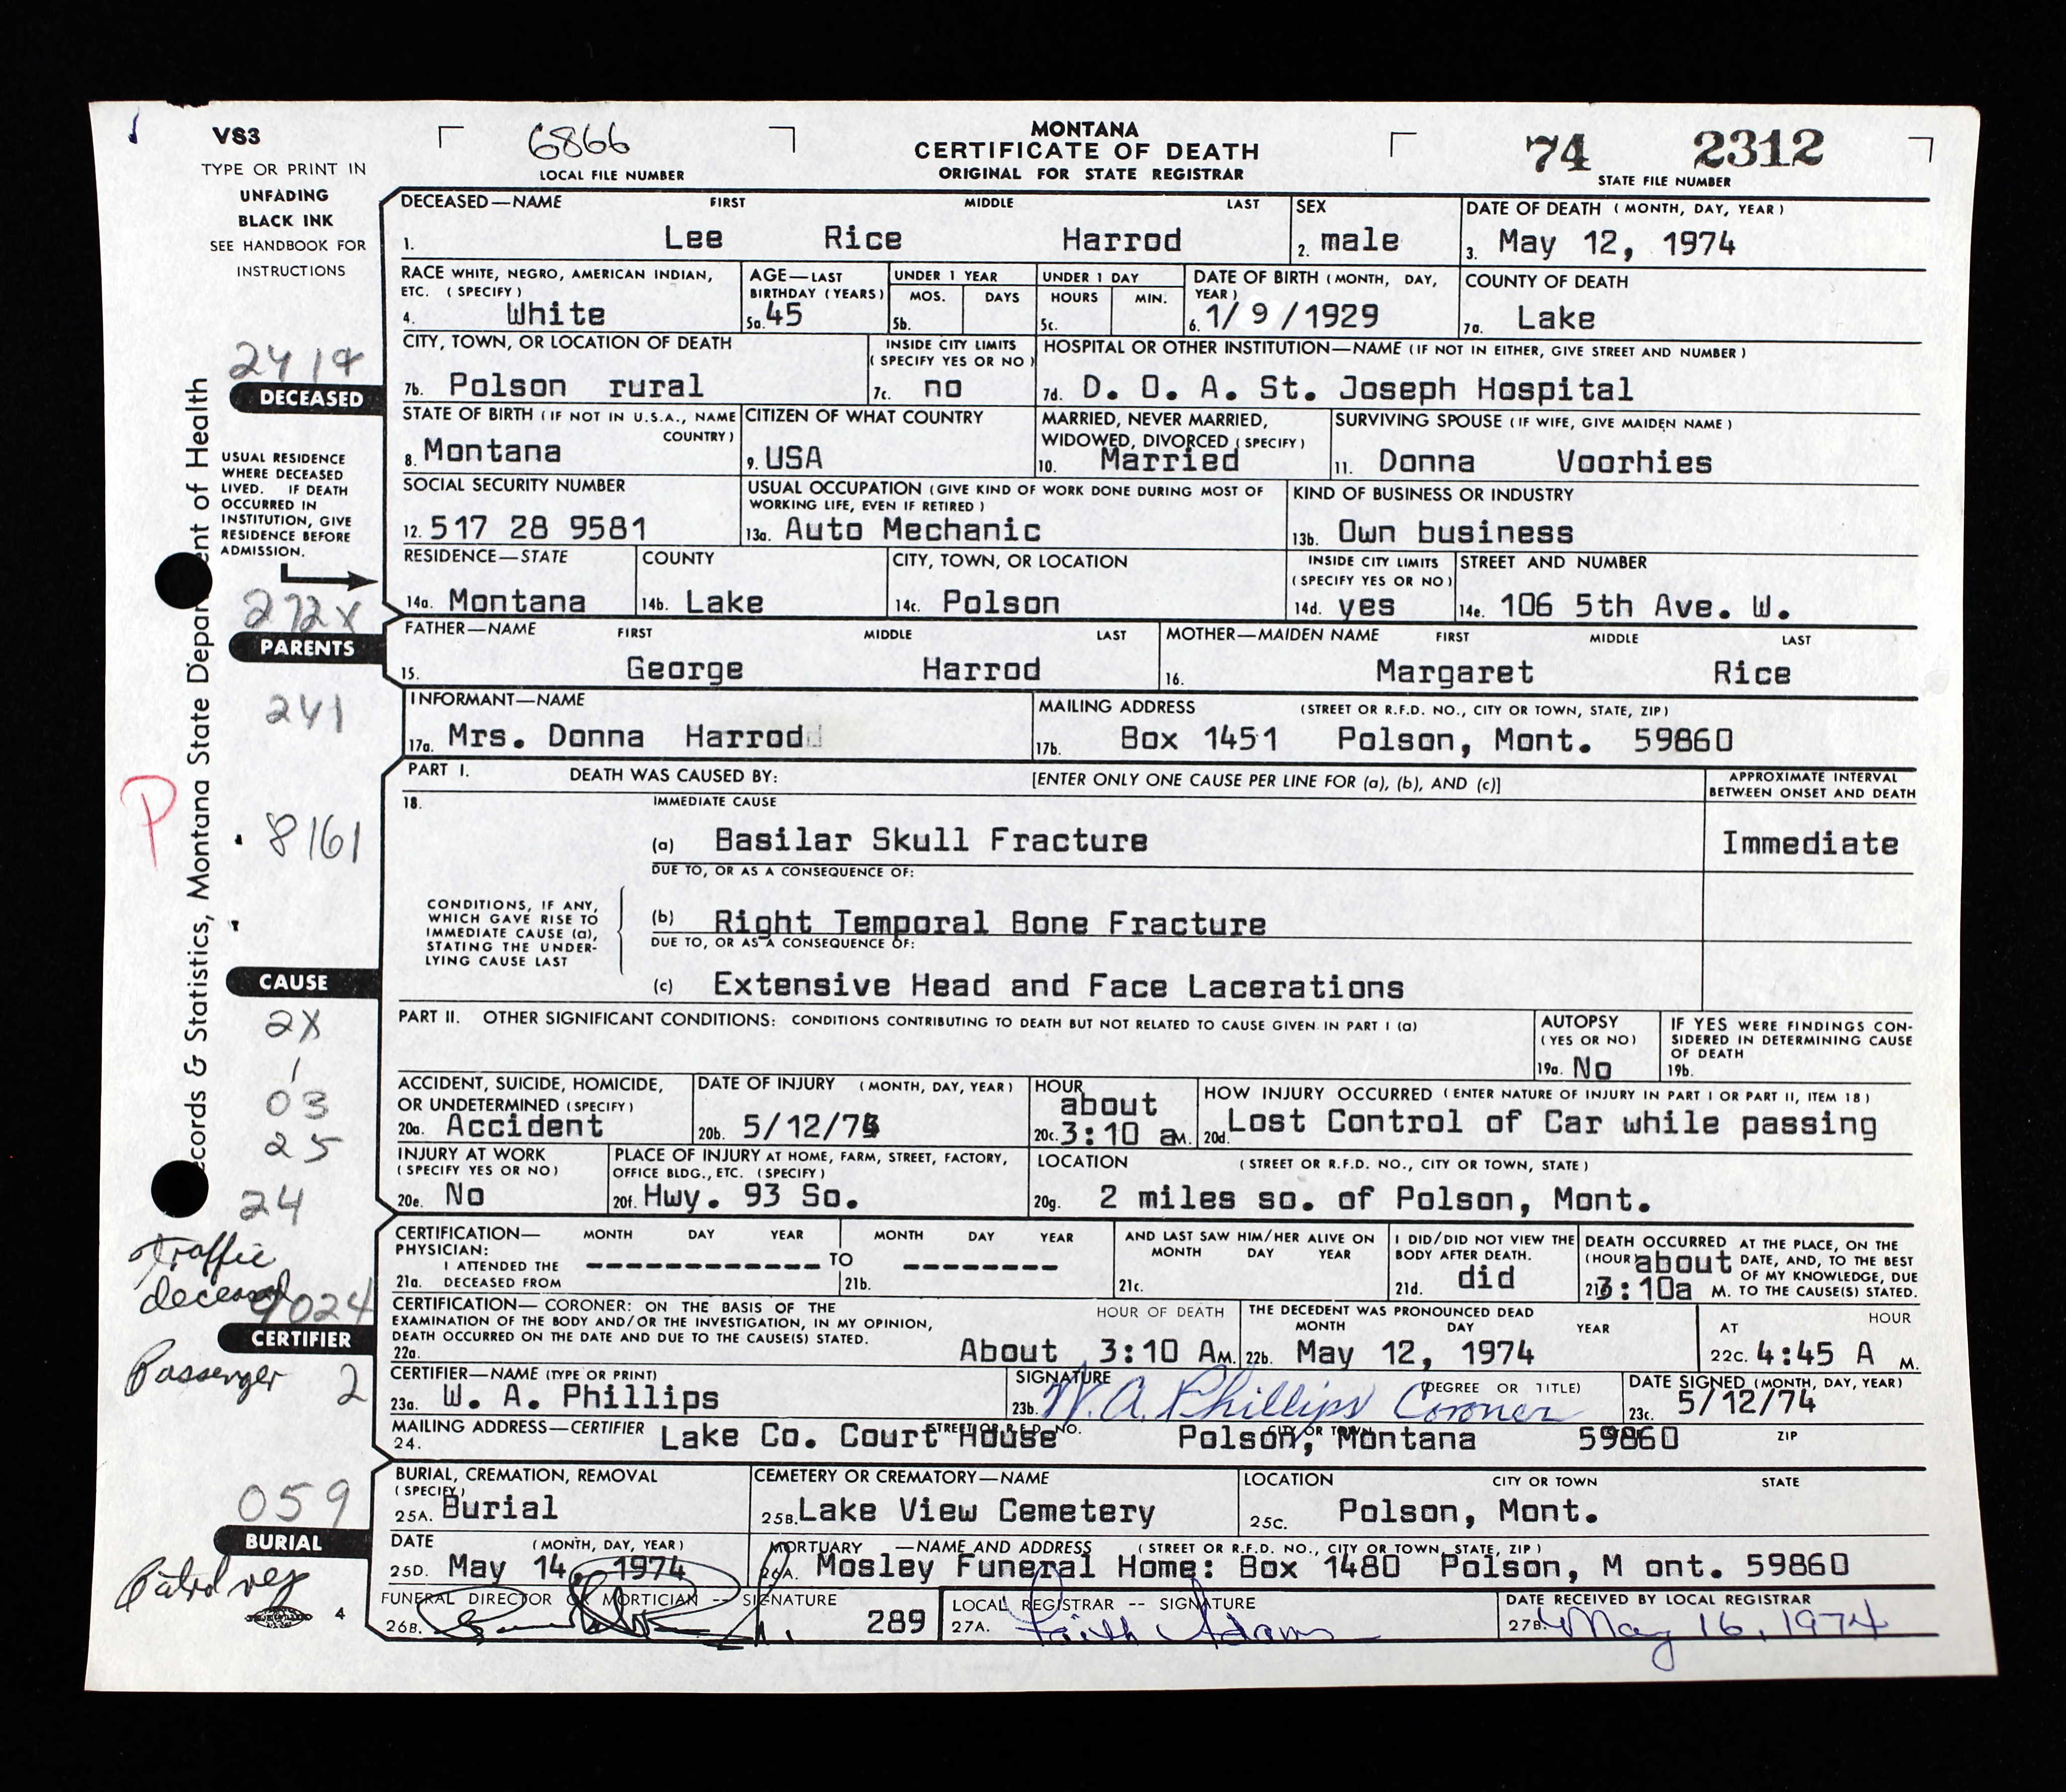 VS3
TYPE OR PRINT IN
UNFADING
BLACK INK
SEE HANDBOOK FOR
INSTRUCTIONS
6866
LOCAL FILE NUMBER
MONTANA
CERTIFICATE OF DEATH
ORIGINAL FOR STATE REGISTRAR
74 2312
STATE FILE NUMBER
DECEASED—NAME FIRST MIDDLE LAST
1. Lee Rice Harrod
SEX
2. male
DATE OF DEATH (MONTH, DAY, YEAR)
3. May 12, 1974
RACE WHITE, NEGRO, AMERICAN INDIAN,
ETC. (SPECIFY)
4. White
AGE—LAST
BIRTHDAY (YEARS)
5a. 45
UNDER 1 YEAR
MOS. DAYS
5b.
UNDER 1 DAY
HOURS MIN.
5c.
DATE OF BIRTH (MONTH, DAY,
YEAR)
6. 1/ 9 /1929
COUNTY OF DEATH
7a. Lake
CITY, TOWN, OR LOCATION OF DEATH
7b. Polson rural
INSIDE CITY LIMITS
(SPECIFY YES OR NO)
7c. no
HOSPITAL OR OTHER INSTITUTION—NAME (IF NOT IN EITHER, GIVE STREET AND NUMBER)
7d. D. O. A. St. Joseph Hospital
DECEASED
STATE OF BIRTH (IF NOT IN U.S.A., NAME
COUNTRY)
8. Montana
CITIZEN OF WHAT COUNTRY
9. USA
MARRIED, NEVER MARRIED,
WIDOWED, DIVORCED (SPECIFY)
10. Married
SURVIVING SPOUSE (IF WIFE, GIVE MAIDEN NAME)
11. Donna Voorhies
USUAL RESIDENCE
WHERE DECEASED
LIVED. IF DEATH
OCCURRED IN
INSTITUTION, GIVE
RESIDENCE BEFORE
ADMISSION.
SOCIAL SECURITY NUMBER
12. 517 28 9581
USUAL OCCUPATION (GIVE KIND OF WORK DONE DURING MOST OF
WORKING LIFE, EVEN IF RETIRED)
13a. Auto Mechanic
KIND OF BUSINESS OR INDUSTRY
13b. Own business
RESIDENCE—STATE
14a. Montana
COUNTY
14b. Lake
CITY, TOWN, OR LOCATION
14c. Polson
INSIDE CITY LIMITS
(SPECIFY YES OR NO)
14d. yes
STREET AND NUMBER
14e. 106 5th Ave. W.
272X
PARENTS
FATHER—NAME FIRST MIDDLE LAST
15. George Harrod
MOTHER—MAIDEN NAME FIRST MIDDLE LAST
16. Margaret Rice
241
INFORMANT—NAME
17a. Mrs. Donna Harrod
MAILING ADDRESS (STREET OR R.F.D. NO., CITY OR TOWN, STATE, ZIP)
17b. Box 1451 Polson, Mont. 59860
P
8161
PART I. DEATH WAS CAUSED BY: [ENTER ONLY ONE CAUSE PER LINE FOR (a), (b), AND (c)]
APPROXIMATE INTERVAL
BETWEEN ONSET AND DEATH
18. IMMEDIATE CAUSE
(a) Basilar Skull Fracture
Immediate
DUE TO, OR AS A CONSEQUENCE OF:
CONDITIONS, IF ANY,
WHICH GAVE RISE TO
IMMEDIATE CAUSE (a),
STATING THE UNDER-
LYING CAUSE LAST
(b) Right Temporal Bone Fracture
DUE TO, OR AS A CONSEQUENCE OF:
(c) Extensive Head and Face Lacerations
CAUSE
2X
1
03
25
24
PART II. OTHER SIGNIFICANT CONDITIONS: CONDITIONS CONTRIBUTING TO DEATH BUT NOT RELATED TO CAUSE GIVEN IN PART I (a)
AUTOPSY
(YES OR NO)
19a. No
IF YES WERE FINDINGS CON-
SIDERED IN DETERMINING CAUSE
OF DEATH
19b.
ACCIDENT, SUICIDE, HOMICIDE,
OR UNDETERMINED (SPECIFY)
20a. Accident
DATE OF INJURY (MONTH, DAY, YEAR)
20b. 5/12/7
HOUR
about
20c. 3:10 am.
HOW INJURY OCCURRED (ENTER NATURE OF INJURY IN PART I OR PART II, ITEM 18)
20d. Lost Control of Car while passing
INJURY AT WORK
(SPECIFY YES OR NO)
20e. No
PLACE OF INJURY AT HOME, FARM, STREET, FACTORY,
OFFICE BLDG., ETC. (SPECIFY)
20f. Hwy. 93 So.
LOCATION (STREET OR R.F.D. NO., CITY OR TOWN, STATE)
20g. 2 miles so. of Polson, Mont.
Traffic
deceased
9024
CERTIFIER
Passenger 2
CERTIFICATION— MONTH DAY YEAR MONTH DAY YEAR
PHYSICIAN:
I ATTENDED THE
21a. DECEASED FROM TO
21b.
AND LAST SAW HIM/HER ALIVE ON
MONTH DAY YEAR
21c.
I DID/DID NOT VIEW THE
BODY AFTER DEATH.
21d. did
DEATH OCCURRED AT THE PLACE, ON THE
(HOUR) about DATE, AND, TO THE BEST
OF MY KNOWLEDGE, DUE
3:10a M. TO THE CAUSE(S) STATED.
CERTIFICATION— CORONER: ON THE BASIS OF THE
EXAMINATION OF THE BODY AND/OR THE INVESTIGATION, IN MY OPINION,
DEATH OCCURRED ON THE DATE AND DUE TO THE CAUSE(S) STATED.
HOUR OF DEATH
22a. About 3:10 AM.
THE DECEDENT WAS PRONOUNCED DEAD
MONTH DAY YEAR
22b. May 12, 1974
AT HOUR
22c. 4:45 A M.
CERTIFIER—NAME (TYPE OR PRINT)
23a. W. A. Phillips
SIGNATURE (DEGREE OR TITLE)
23b. W. A. Phillips Coroner
DATE SIGNED (MONTH, DAY, YEAR)
23c. 5/12/74
MAILING ADDRESS—CERTIFIER STREET OR R.F.D. NO. CITY OR TOWN ZIP
24. Lake Co. Court House Polson, Montana 59860
059
BURIAL
BURIAL, CREMATION, REMOVAL
(SPECIFY)
25A. Burial
CEMETERY OR CREMATORY—NAME
25B. Lake View Cemetery
LOCATION CITY OR TOWN STATE
25C. Polson, Mont.
DATE (MONTH, DAY, YEAR)
25D. May 14, 1974
MORTUARY —NAME AND ADDRESS (STREET OR R.F.D. NO., CITY OR TOWN, STATE, ZIP)
26A. Mosley Funeral Home: Box 1480 Polson, M ont. 59860
4
FUNERAL DIRECTOR OR MORTICIAN -- SIGNATURE
26B. 289
LOCAL REGISTRAR -- SIGNATURE
27A. Faith Adams
DATE RECEIVED BY LOCAL REGISTRAR
27B. May 16, 1974
ecords & Statistics, Montana State Depar ent of Health